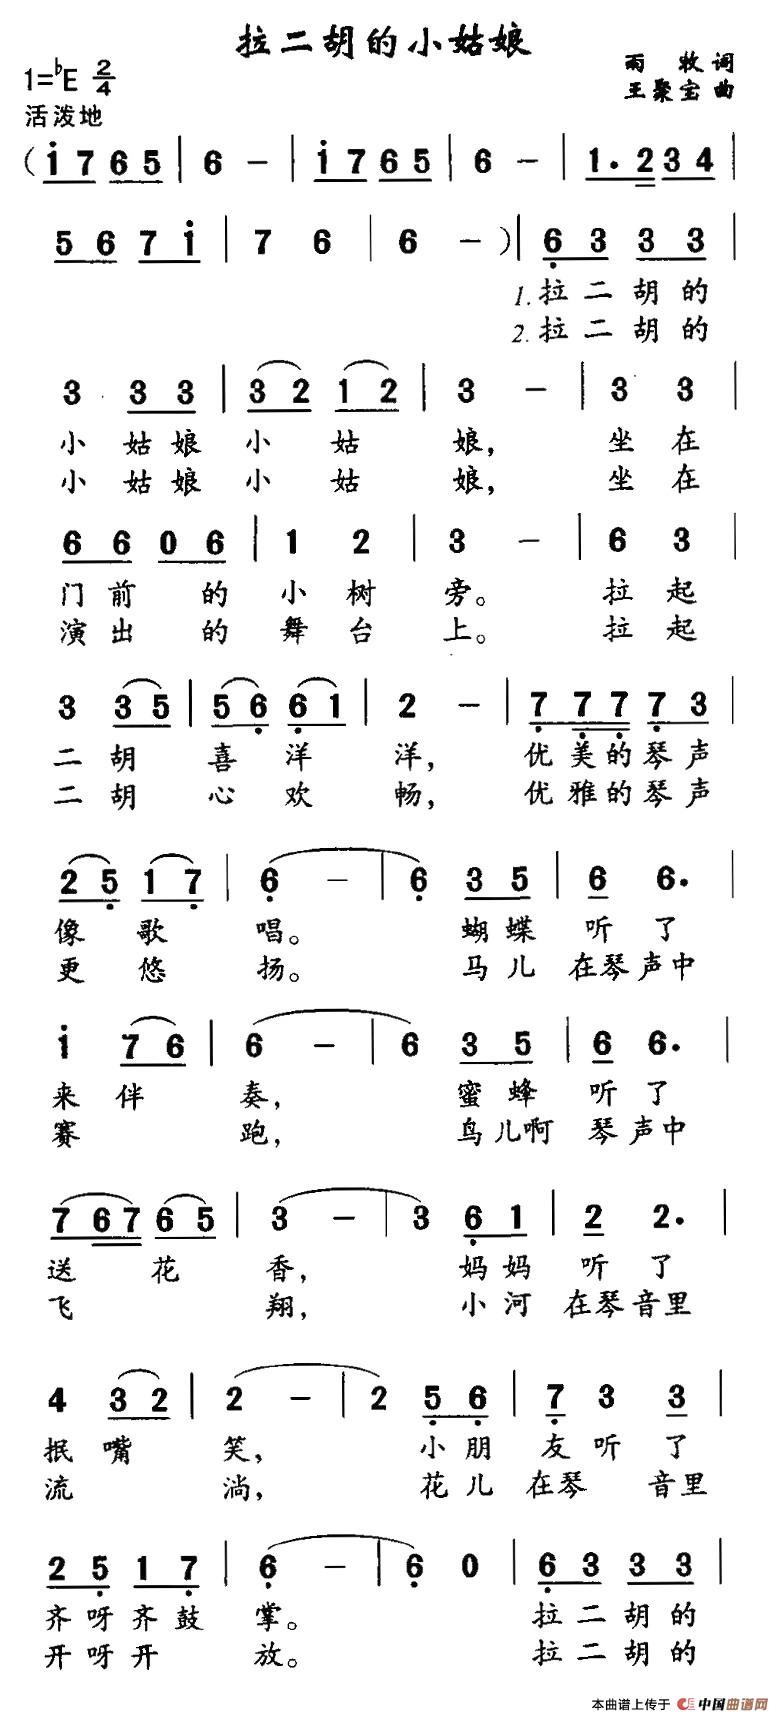 拉二胡的小姑娘
1=♭E 2/4
雨牧词
王聚宝曲
活泼地
( i 7 6 5 | 6 - | i 7 6 5 | 6 - | 1. 2 3 4 |
5 6 7 i | 7 6 | 6 - ) | 6 3 3 3 |
1.拉二胡的
2.拉二胡的
3 3 3 | 3 2 1 2 | 3 - | 3 3 |
小姑娘小姑娘，坐在
小姑娘小姑娘，坐在
6 6 0 6 | 1 2 | 3 - | 6 3 |
门前的小树旁。拉起
演出的舞台上。拉起
3 3 5 | 5 6 6 1 | 2 - | 7 7 7 7 3 |
二胡喜洋洋，优美的琴声
二胡心欢畅，优雅的琴声
2 5 1 7 | 6 - | 6 3 5 | 6 6. |
像歌唱。蝴蝶听了
更悠扬。马儿在琴声中
i 7 6 | 6 - | 6 3 5 | 6 6. |
来伴奏，蜜蜂听了
赛跑，鸟儿啊琴声中
7 6 7 6 5 | 3 - | 3 6 1 | 2 2. |
送花香，妈妈听了
飞翔，小河在琴音里
4 3 2 | 2 - | 2 5 6 | 7 3 3 |
抿嘴笑，小朋友听了
流淌，花儿在琴音里
2 5 1 7 | 6 - | 6 0 | 6 3 3 3 |
齐呀齐鼓掌。拉二胡的
开呀开放。拉二胡的
本曲谱上传于 中国曲谱网